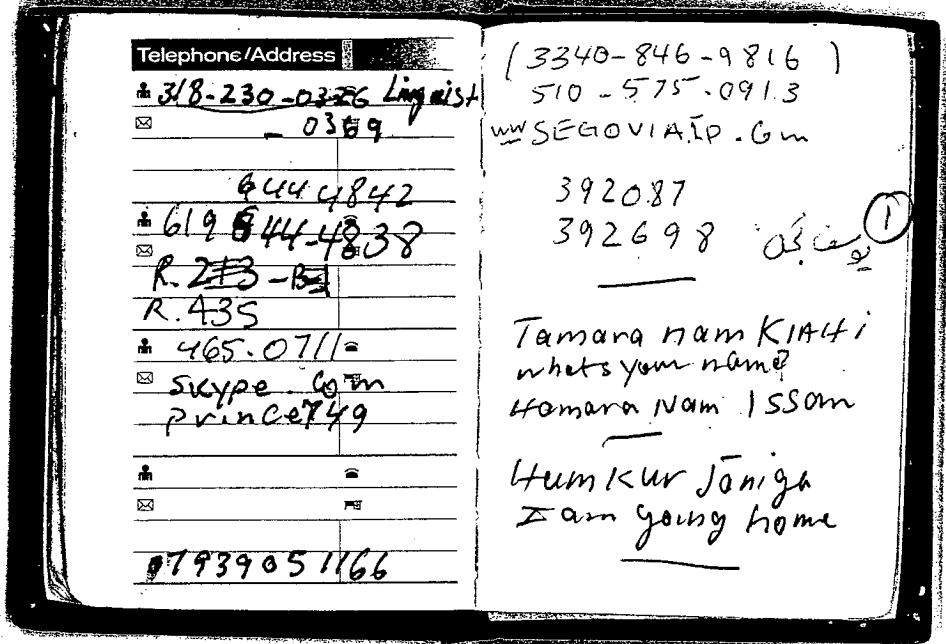 Telephone/Address
318-230-0326 Linguist
- 0369
644 4842
619 644-4838
R. 213 - B1
R. 435
465.0711
skype.com
prince749
07939051166
(3340-846-9816)
510-575-0913
www SEGOVIAIP.Com
392087
392698
1
Tamara nam KIAHi
whats your name?
Hamara Nam ISSam
Hum Kur Janiga
I am going home